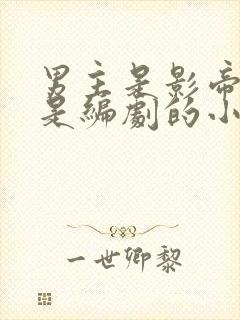 男主是影帝
是编剧的小
一世卿黎